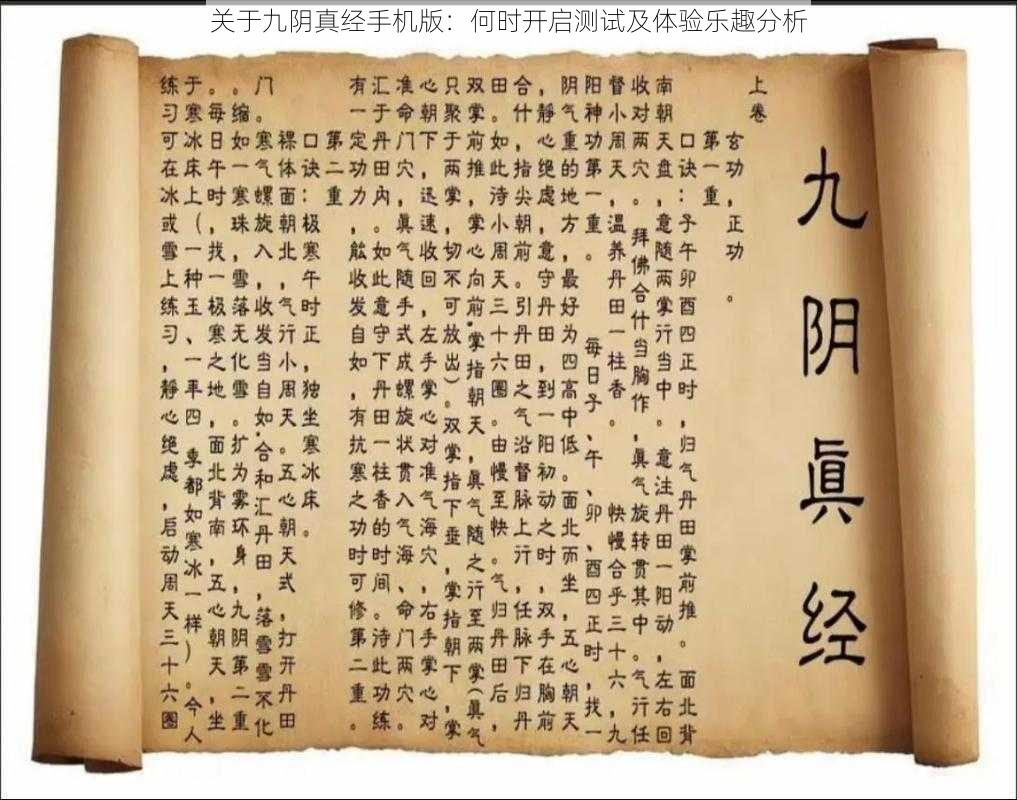 关于九阴真经手机版：何时开启测试及体验乐趣分析
九阴眞经
上卷
玄功，正功。
第一重，
口诀：子午卯酉四正时，归气丹田掌前推。面北背
南朝天盘，意随两掌行当中。意注丹田一阳动，左右回
收对两穴。拜佛合什当胸作，眞气旋转贯其中。气行任
督小周天，温养丹田一柱香。快慢合乎三十六，九
阳神功第一重。每日子、午、卯、酉四正时，找一
阴气重的地方，最好为四高中低。面北而坐，五心朝天
，静心绝虑，意守丹田，到一阳初动之时，双手在胸前
合什，指尖朝前。引丹田之气沿督脉上行，任脉下归丹
田。如此待小周天三十六圈。由慢至快。气归丹田后，
双掌前推，掌心向前，掌指朝天，眞气随之行至两掌(眞气
只聚于两掌，切不可放出)。双掌指下垂，掌指朝下，掌
心朝下，迅速收回，左手掌心对准气海穴，右手掌心对
准命门穴，眞气随手式成螺旋状贯入气海、命门两穴。
汇于丹田内。如此意守下丹田一柱香的时间。待此功练
有一定功力，能收发自如，有抗寒之功时可修第二重。
第二重
口诀：极寒午时正，独坐寒冰床。
裸体面朝北，气行小周天。五心朝天式，打开丹田
门。寒气螺旋入，收发当自如。合和汇丹田，落雪雪不化
。缩如一寒珠，雪落无化雪。扩为雾环身，九阴第二重
。每日午时，找一极寒之地，面北背南，五心朝天，坐
于寒冰床上(一种玉、一年四季都如寒冰一样)。今人
练习可在冰或雪上练习，静心绝虑，启动周天三十六圈